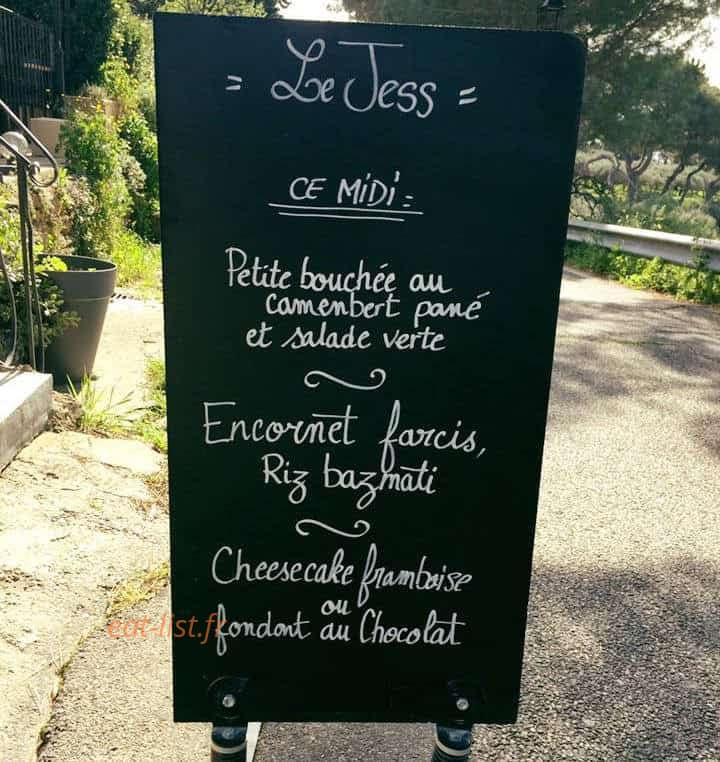 = Le Jess =
CE MiDi :
Petite bouchée au
camenbert pané
et salade verte
Encornet farcis,
Riz bazmati
Cheesecake framboise
ou
fondant au Chocolat
eat-list.fr